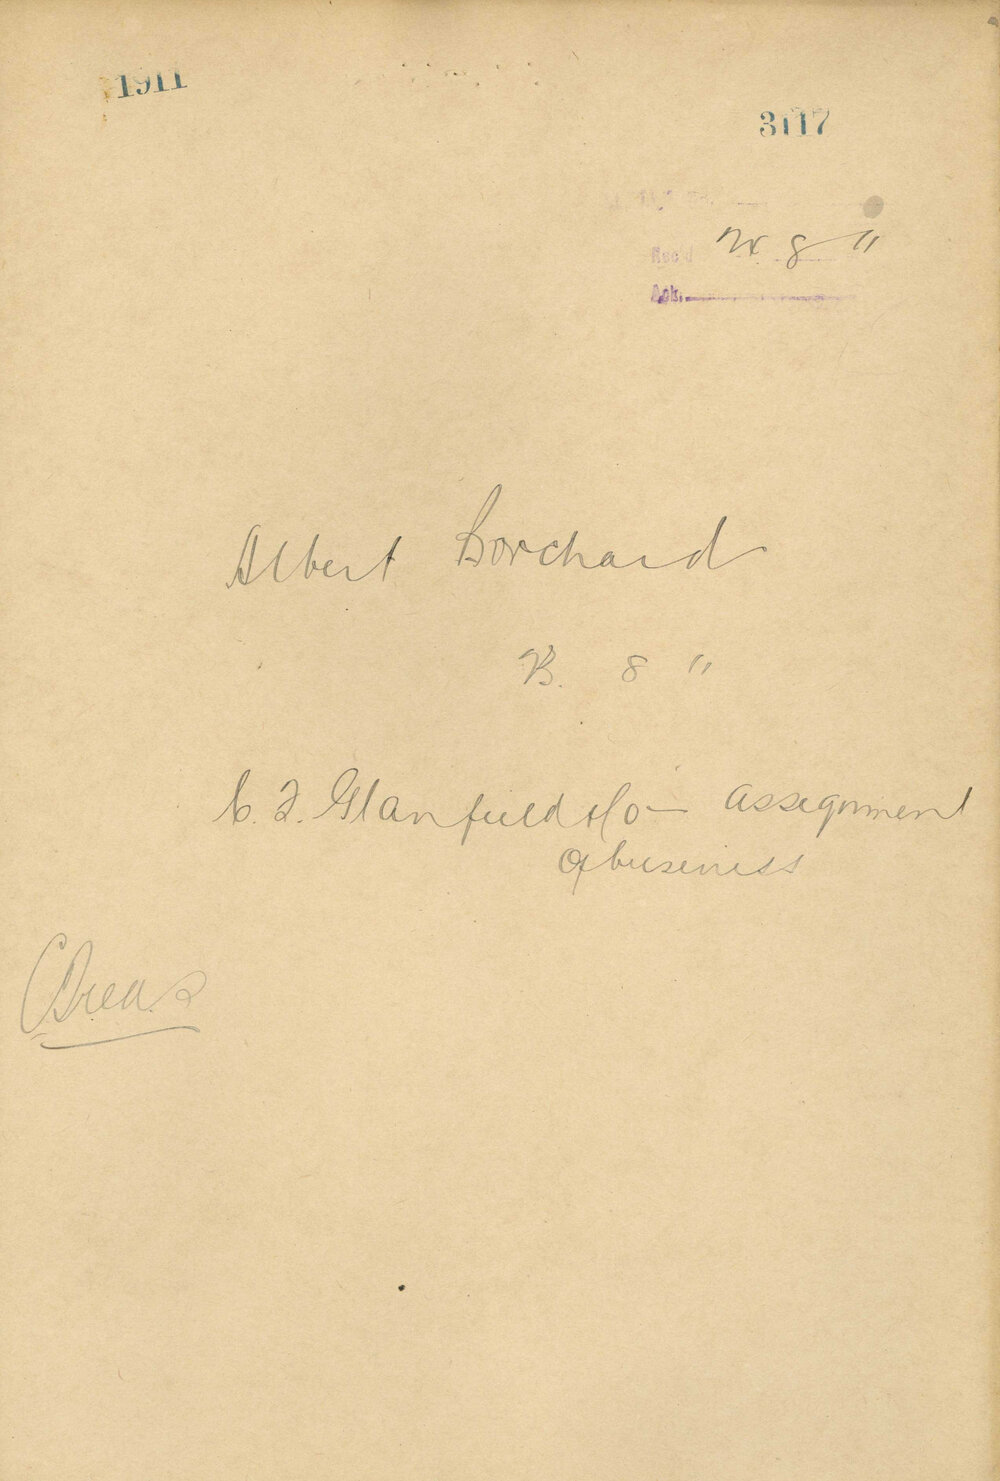 1911
3117
Rec'd 8 "
Ack.
Albert Borchard
B. 8 "
C. F. Glanfield & Co — Assignment
of business